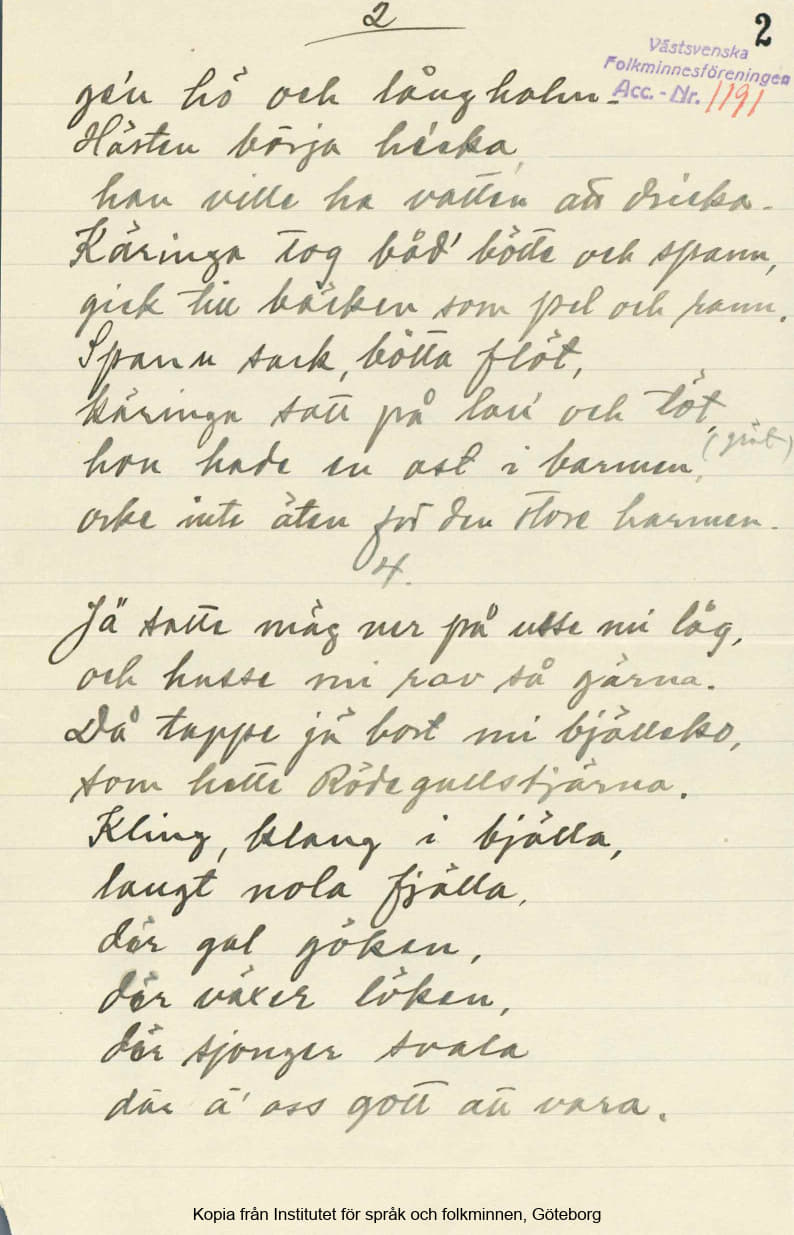 2
2
Västsvenska
Folkminnesföreningen
Acc. - Nr. 1191
ge'n hö och långhalm-
Hästen börja hicka
han ville ha vatten att dricka.
Käringa tog båd' bötte och spann,
gick till bäcken som pel och rann.
Spann sack, bötta flöt,
käringa satt på lan' och töt,
(gröt)
hon hade en ost i barmen,
orke inte äten för den store harmen.
4.
Jä satte mäg ner på usse mi låg,
och husse mi rav så gärna.
Då tappe jä bort mi bjälleko,
som hette Rödegullstjärna.
Kling, klang i bjälla,
langt nola fjälla,
där gal göken,
där växer löken,
där sjonger svala
där ä' oss gott att vara.
Kopia från Institutet för språk och folkminnen, Göteborg